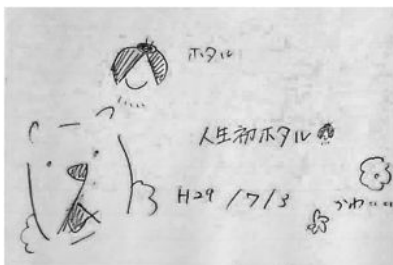 ホタル
人生初ホタル
H29/7/3
かわいい